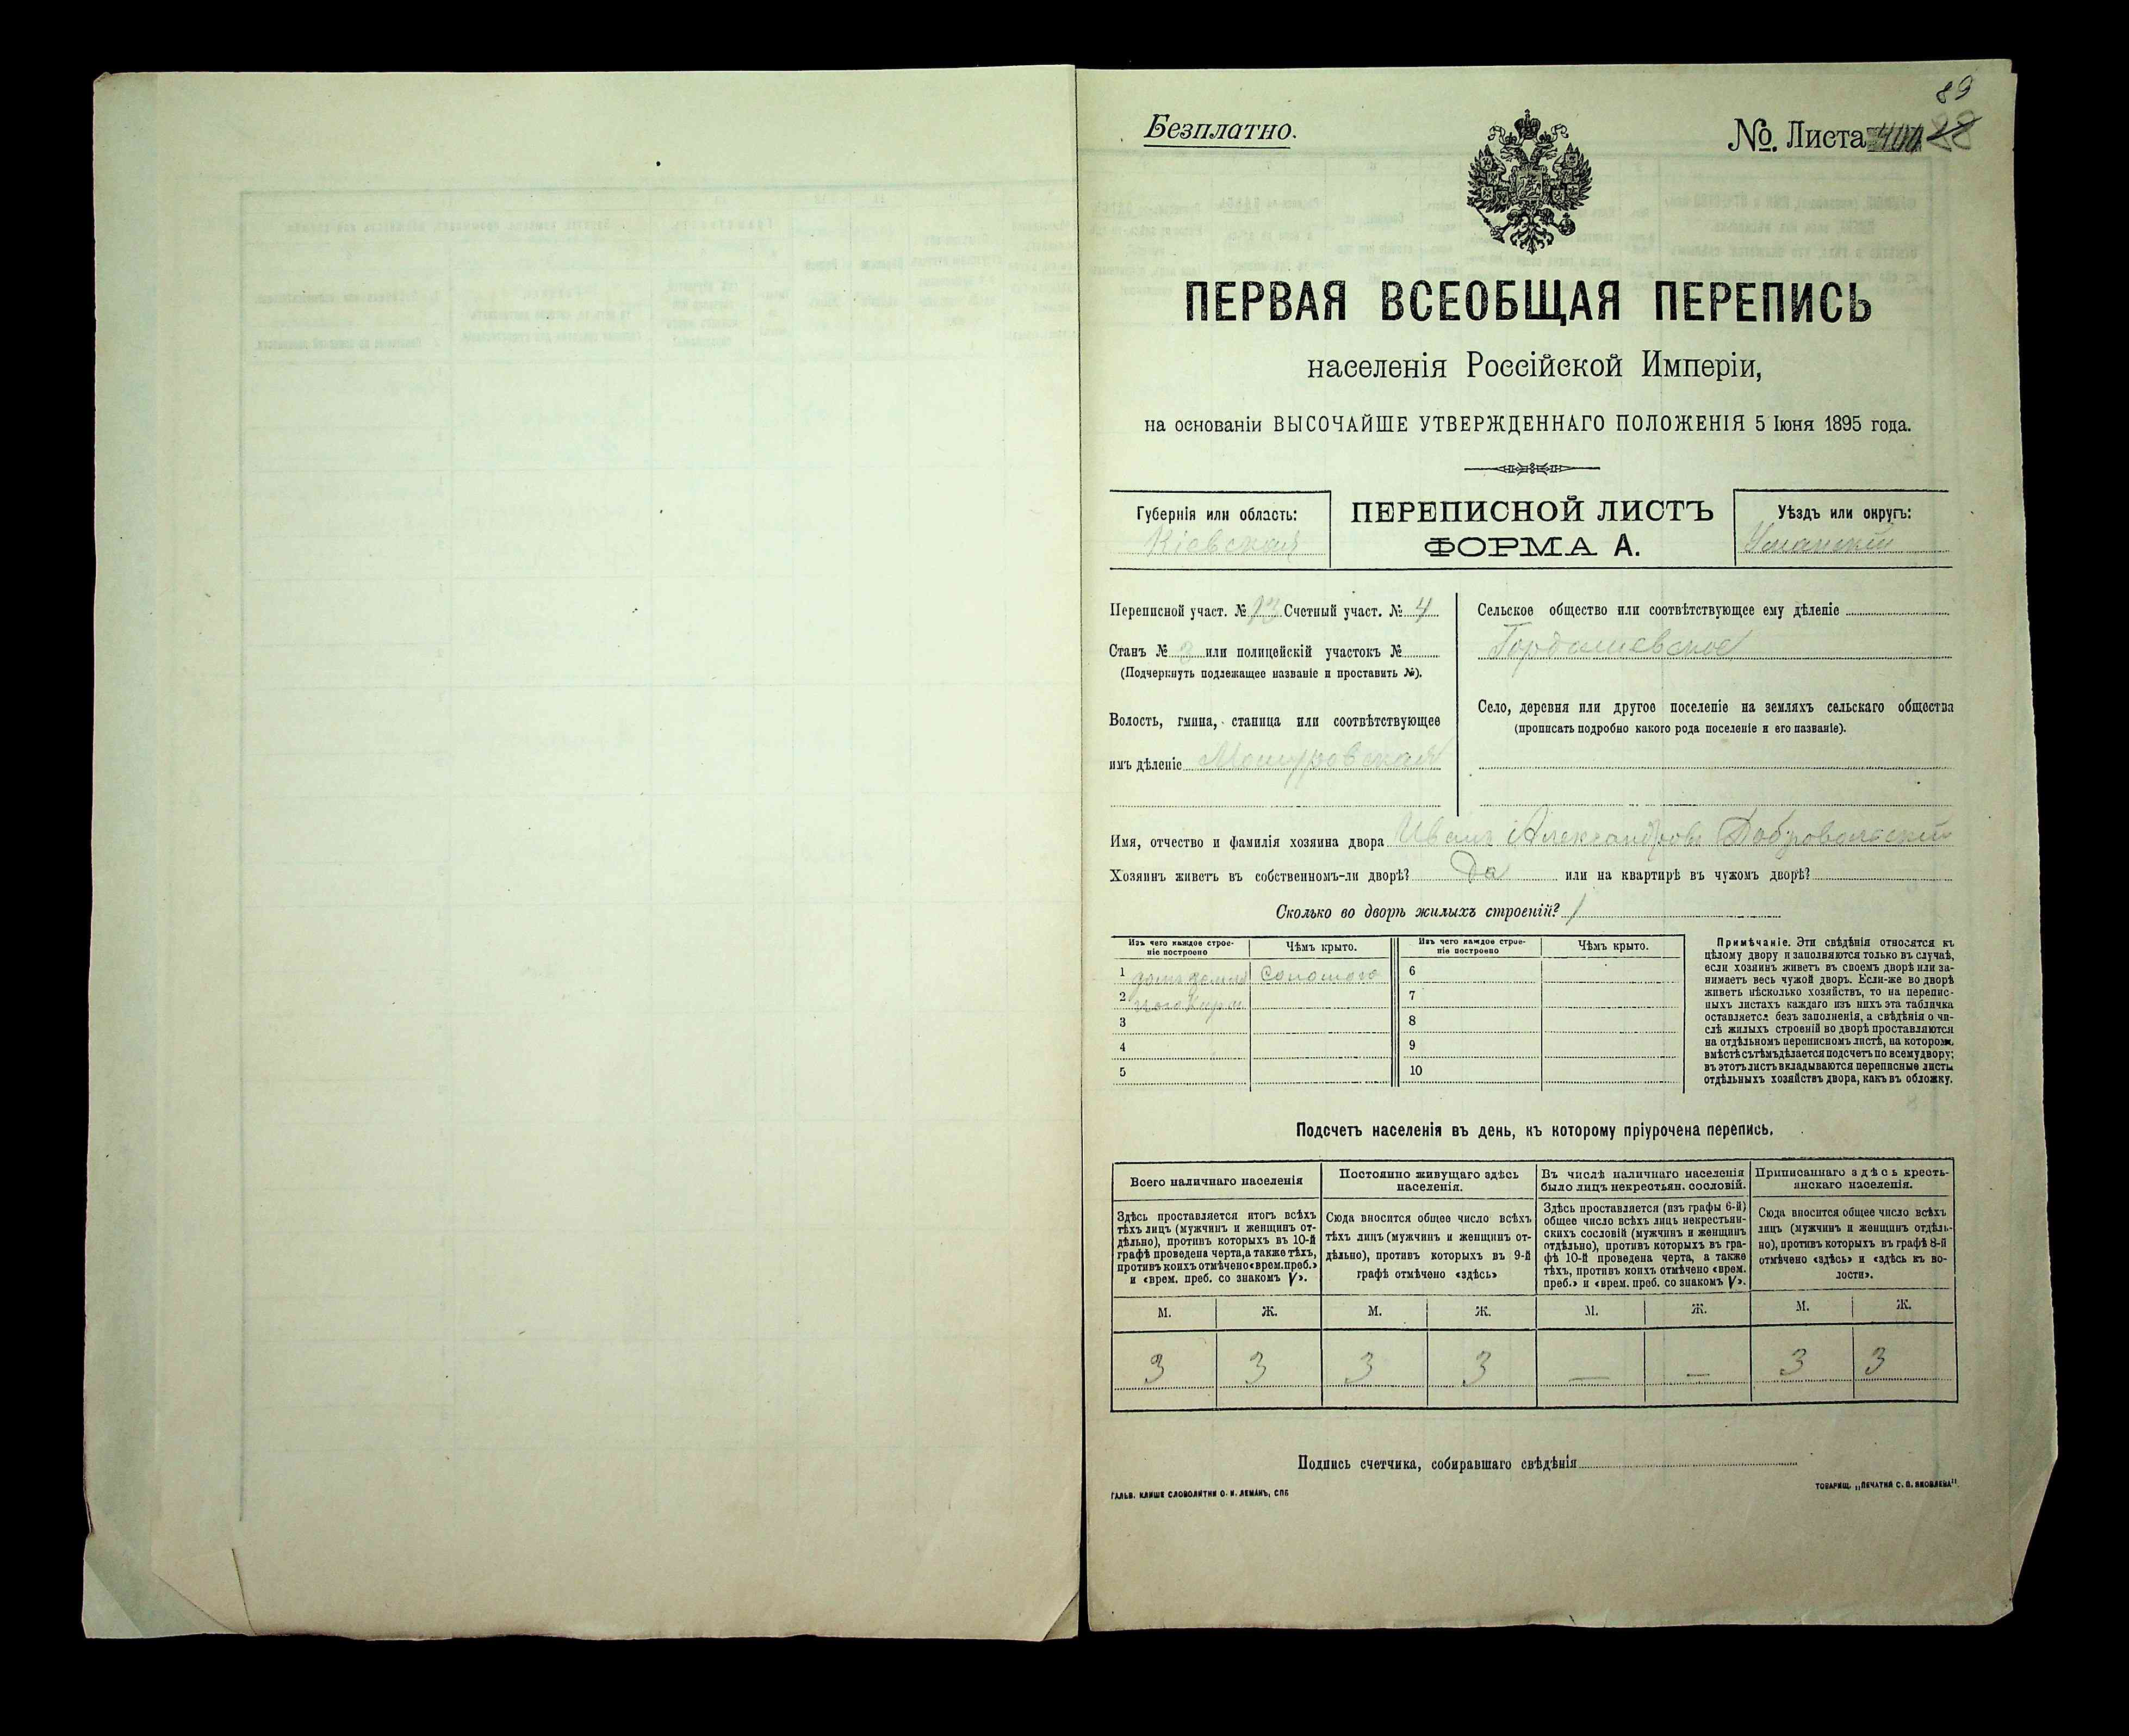 89
Безплатно.
№. Листа
ПЕРВАЯ ВСЕОБЩАЯ ПЕРЕПИСЬ
населенія Россійской Имперіи,
на основаніи ВЫСОЧАЙШЕ УТВЕРЖДЕННАГО ПОЛОЖЕНІЯ 5 Іюня 1895 года.
Губернія или область:
Кіевская
ПЕРЕПИСНОЙ ЛИСТЪ
ФОРМА А.
Уѣздъ или округъ:
Уманскій
Переписной участ. № 13 Счетный участ. № 4
Станъ № 3 или полицейскій участокъ №
(Подчеркнуть подлежащее названіе и проставить №).
Волость, гмина, станица или соотвѣтствующее
имъ дѣленіе Мошуровская
Сельское общество или соотвѣтствующее ему дѣленіе
Гордашевское
Село, деревня или другое поселеніе на земляхъ сельскаго общества
(прописать подробно какого рода поселеніе и его названіе).
Имя, отчество и фамилія хозяина двора Иванъ Александровъ Добровольскій
Хозяинъ живетъ въ собственномъ-ли дворѣ? Да или на квартирѣ въ чужомъ дворѣ?
Сколько во дворѣ жилыхъ строеній? 1
Изъ чего каждое строе-
ніе построено
Чѣмъ крыто.
Изъ чего каждое строе-
ніе построено
Чѣмъ крыто.
1 Соломою 6
2 7
3 8
4 9
5 10
Примѣчаніе. Эти свѣдѣнія относятся къ
цѣлому двору и заполняются только въ случаѣ,
если хозяинъ живетъ въ своемъ дворѣ или за-
нимаетъ весь чужой дворъ. Если-же во дворѣ
живетъ нѣсколько хозяйствъ, то на перепис-
ныхъ листахъ каждаго изъ нихъ эта табличка
оставляется безъ заполненія, а свѣдѣнія о чи-
слѣ жилыхъ строеній во дворѣ проставляются
на отдѣльномъ переписномъ листѣ, на которомъ
вмѣстѣ съ тѣмъ дѣлается подсчетъ по всему двору;
въ этотъ листъ вкладываются переписные листы
отдѣльныхъ хозяйствъ двора, какъ въ обложку.
Подсчетъ населенія въ день, къ которому пріурочена перепись.
Всего наличнаго населенія
Постоянно живущаго здѣсь
населенія.
Въ числѣ наличнаго населенія
было лицъ некрестьян. сословій.
Приписаннаго здѣсь кресть-
янскаго населенія.
Здѣсь проставляется итогъ всѣхъ
тѣхъ лицъ (мужчинъ и женщинъ от-
дѣльно), противъ которыхъ въ 10-й
графѣ проведена черта, а также тѣхъ,
противъ коихъ отмѣчено «врем. преб.»
и «врем. преб. со знакомъ V».
Сюда вносится общее число всѣхъ
тѣхъ лицъ (мужчинъ и женщинъ от-
дѣльно), противъ которыхъ въ 9-й
графѣ отмѣчено «здѣсь»
Здѣсь проставляется (изъ графы 6-й)
общее число всѣхъ лицъ некрестьян-
скихъ сословій (мужчинъ и женщинъ
отдѣльно), противъ которыхъ въ гра-
фѣ 10-й проведена черта, а также
тѣхъ, противъ коихъ отмѣчено «врем.
преб.» и «врем. преб. со знакомъ V».
Сюда вносится общее число всѣхъ
лицъ (мужчинъ и женщинъ отдѣль-
но), противъ которыхъ въ графѣ 8-й
отмѣчено «здѣсь» и «здѣсь къ во-
лости».
М. Ж. М. Ж. М. Ж. М. Ж.
3 3 3 3 — — 3 3
Подпись счетчика, собиравшаго свѣдѣнія
ГАЛЬВ. КЛИШЕ СЛОВОЛИТНИ О. И. ЛЕМАНЪ, СПБ
ТОВАРИЩ. „ПЕЧАТНЯ С. П. ЯКОВЛЕВА"